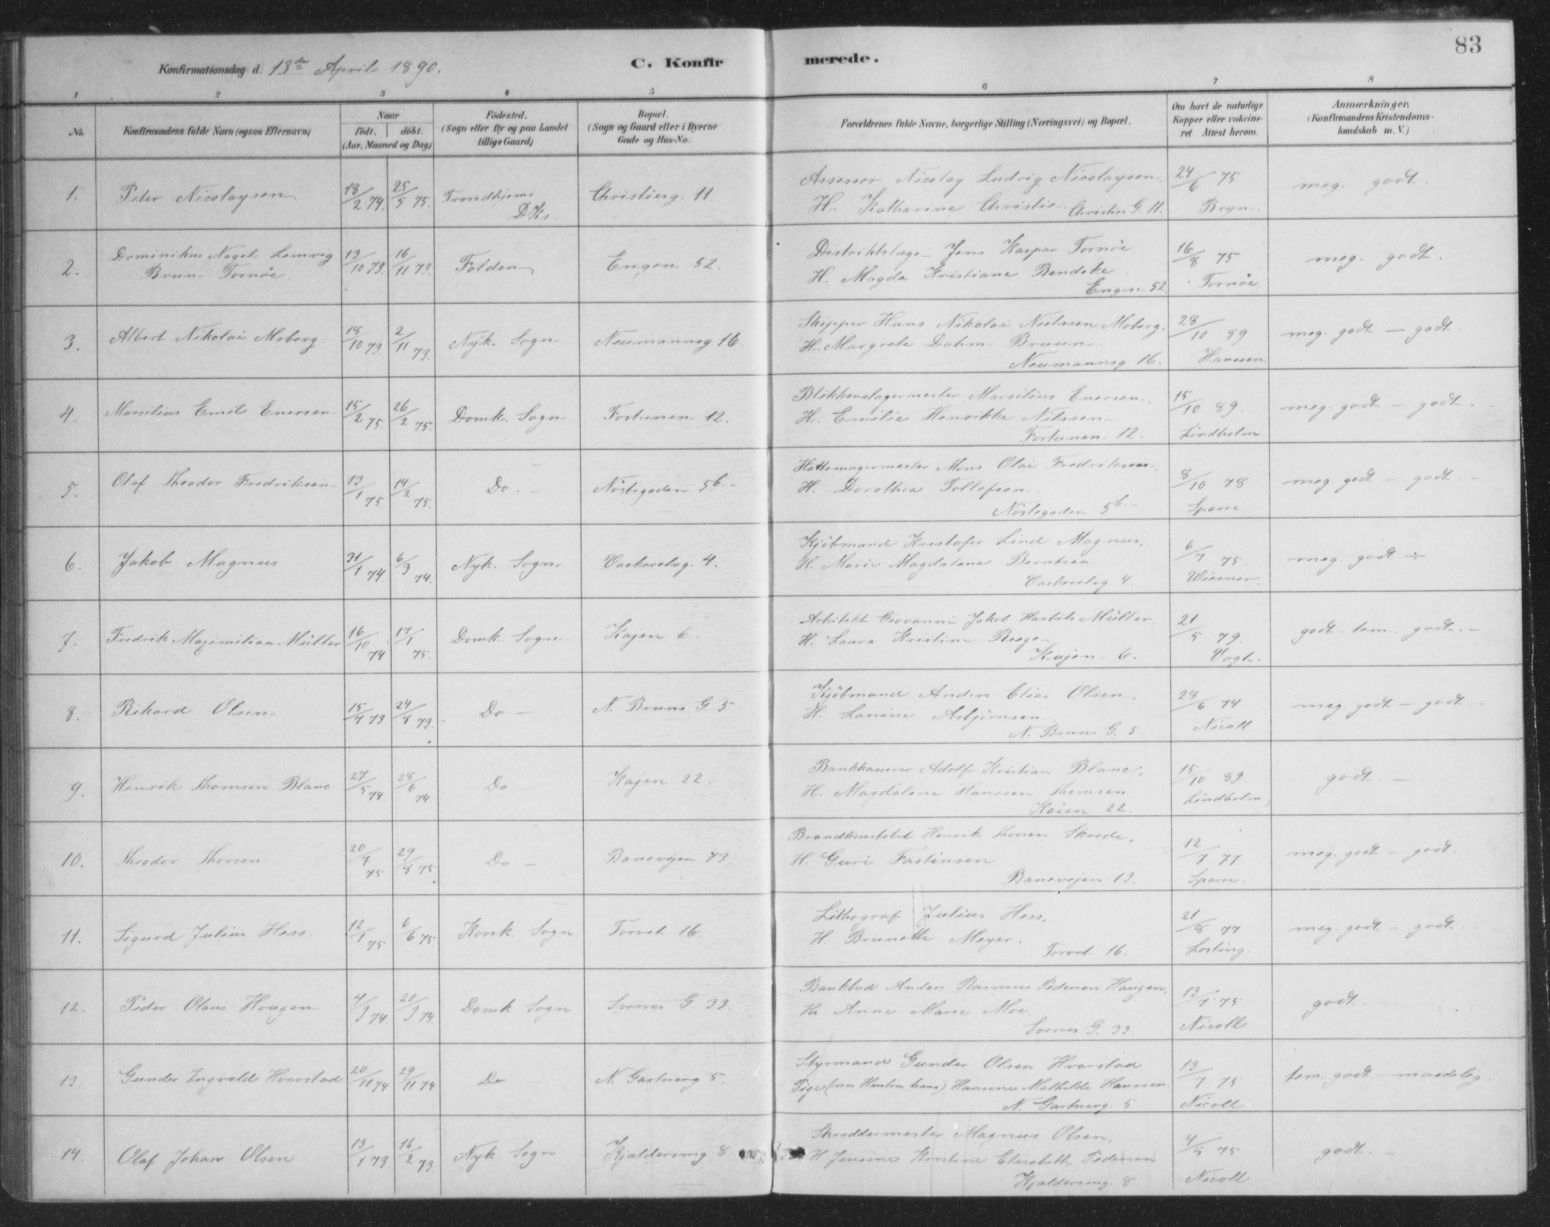 83
Konfirmationsdag d. 13de April 1890.
C. Konfirmerede.
1 2 3 4 5 6 7 8
No.
Konfirmandens fulde Navn (ogsaa Efternavn)
Naar
født. døbt.
(Aar, Maaned og Dag)
Fødested.
(Sogn eller By og paa Landet
tillige Gaard)
Bopæl.
(Sogn og Gaard eller i Byerne
Gade og Hus-No.
Forældrenes fulde Navne, borgerlige Stilling (Næringsvei) og Bopæl.
Om havt de naturlige
Kopper eller vakcine-
ret Attest herom.
Anmærkninger.
(Konfirmandens Kristendoms-
kundskab m. V.)
1. Peter Nicolaysen 18/2 74. 25/5 75. Trondhjems D.K. Christiesg. 11.
Assessor Nicolay Ludvig Nicolaysen.
H. Katharine Christie. Christies G. 11.
24/6 75 Bryn. meg. godt.
2. Dominikus Nagel Lemvig
Bruun Tornöe 13/10 73 16/11 73. Folden Engen 52.
Distriktslæge Jens Kaspar Tornöe
H. Magda Kristiane Bendeke
Engen 52
16/8 75 Tornöe meg. godt.
3. Albert Nikolai Moberg. 18/10 73. 2/11 73. Nyk. Sogn Neumannsg 16.
Skipper Hans Nikolai Moberg.
H. Margrete Dahm Bruun
Neumannsg 16.
28/10 89 Hanssen meg. godt - godt.
4. Marselius Emil Enersen 15/2 75 26/2 75. Domk. Sogn Fortunen 12.
Blikkenslagermester Marselius Enersen.
H. Emilie Henrikke Nilssen
Fortunen 12.
15/10 89. Lindholm meg. godt - godt.
5. Olaf Theodor Fredriksen 13/1 75 14/2 75. Do. - Nöstegaden 5b.
Hattemagermester Mons Olai Fredriksen.
H. Dorothea Tollefsen
Nöstegaden 5b.
8/10 78 Sparre meg. godt - godt -
6. Jakob Magnus 31/1 74 6/3 74. Nyk. Sogn Vaskerelvg. 4.
Kjöbmand Kristofer Lind Magnus.
H. Marie Magdalene Berntsen
Vaskerelvg 4.
6/7 75. Wiesner. meg. godt ÷
7. Fredrik Maximilian Müller 16/10 74 17/1 75. Domk. Sogn. Kajen 6.
Arkitekt Giovanni Jakob Müller.
H. Laura Kristine
Kajen 6.
21/5 79. Vogt. godt - tem. godt. -
8. Rikard Olsen 15/7 73 24/8 73. Do - N. Bruns G. 5
Kjöbmand Anders Elias Olsen.
H. Lanine Asbjörnsen
N. Bruns G. 5.
24/6 74 Nicoll meg. godt - godt. -
9. Henrik Thomsen Blanc 27/5 74. 28/6 74. Do Kajen 22.
Bankkasserer Adolf Kristian Blanc.
H. Magdalene Hanssen Thomsen
Kaien 22.
15/10 89 Lindholm, godt. -
10. Theodor Thorsen 20/7 75 29/8 75. Do - Banevejen 13.
Brandkonstabel Henrik Thorsen Skrede.
H. Guri Fasteinsen
Banevejen 13.
12/7 77 Sparre. meg. godt - godt.
11. Sigurd Julius Hess 12/1 75 6/6 75. Korsk. Sogn Torvet 16
Lithograf Julius Hess.
H. Brunette Meyer.
Torvet 16.
21/8 77 Losting. meg. godt - godt.
12. Peder Olaus Haugen 4/9 74. 20/9 74. Domk. Sogn Sverres G. 33.
Bankbud Anders Rasmus Pedersen Haugen.
H. Anne Marie Moe.
Sverres G. 33.
13/7 75 Nicoll godt. -
13. Gunder Ingvald Hvarstad 20/11 74 29/11 74 Do N. Gartnerg 5.
Styrmand Gunder Olsen Hvarstad
Pige (nu Hustru hans) Hansine Mathilde Hanssen
N. Gartnerg. 5
13/7 75 Nicoll tem. godt - maadelig.
14. Olaf Johan Olsen 13/1 73. 16/2 73. Nyk Sogn Kjeldersmug 8
Skræddermester Magnus Olsen.
H Jensine Kristine Elisabeth Pedersen
Kjeldersmug. 8
4/5 75 Nicoll godt. -